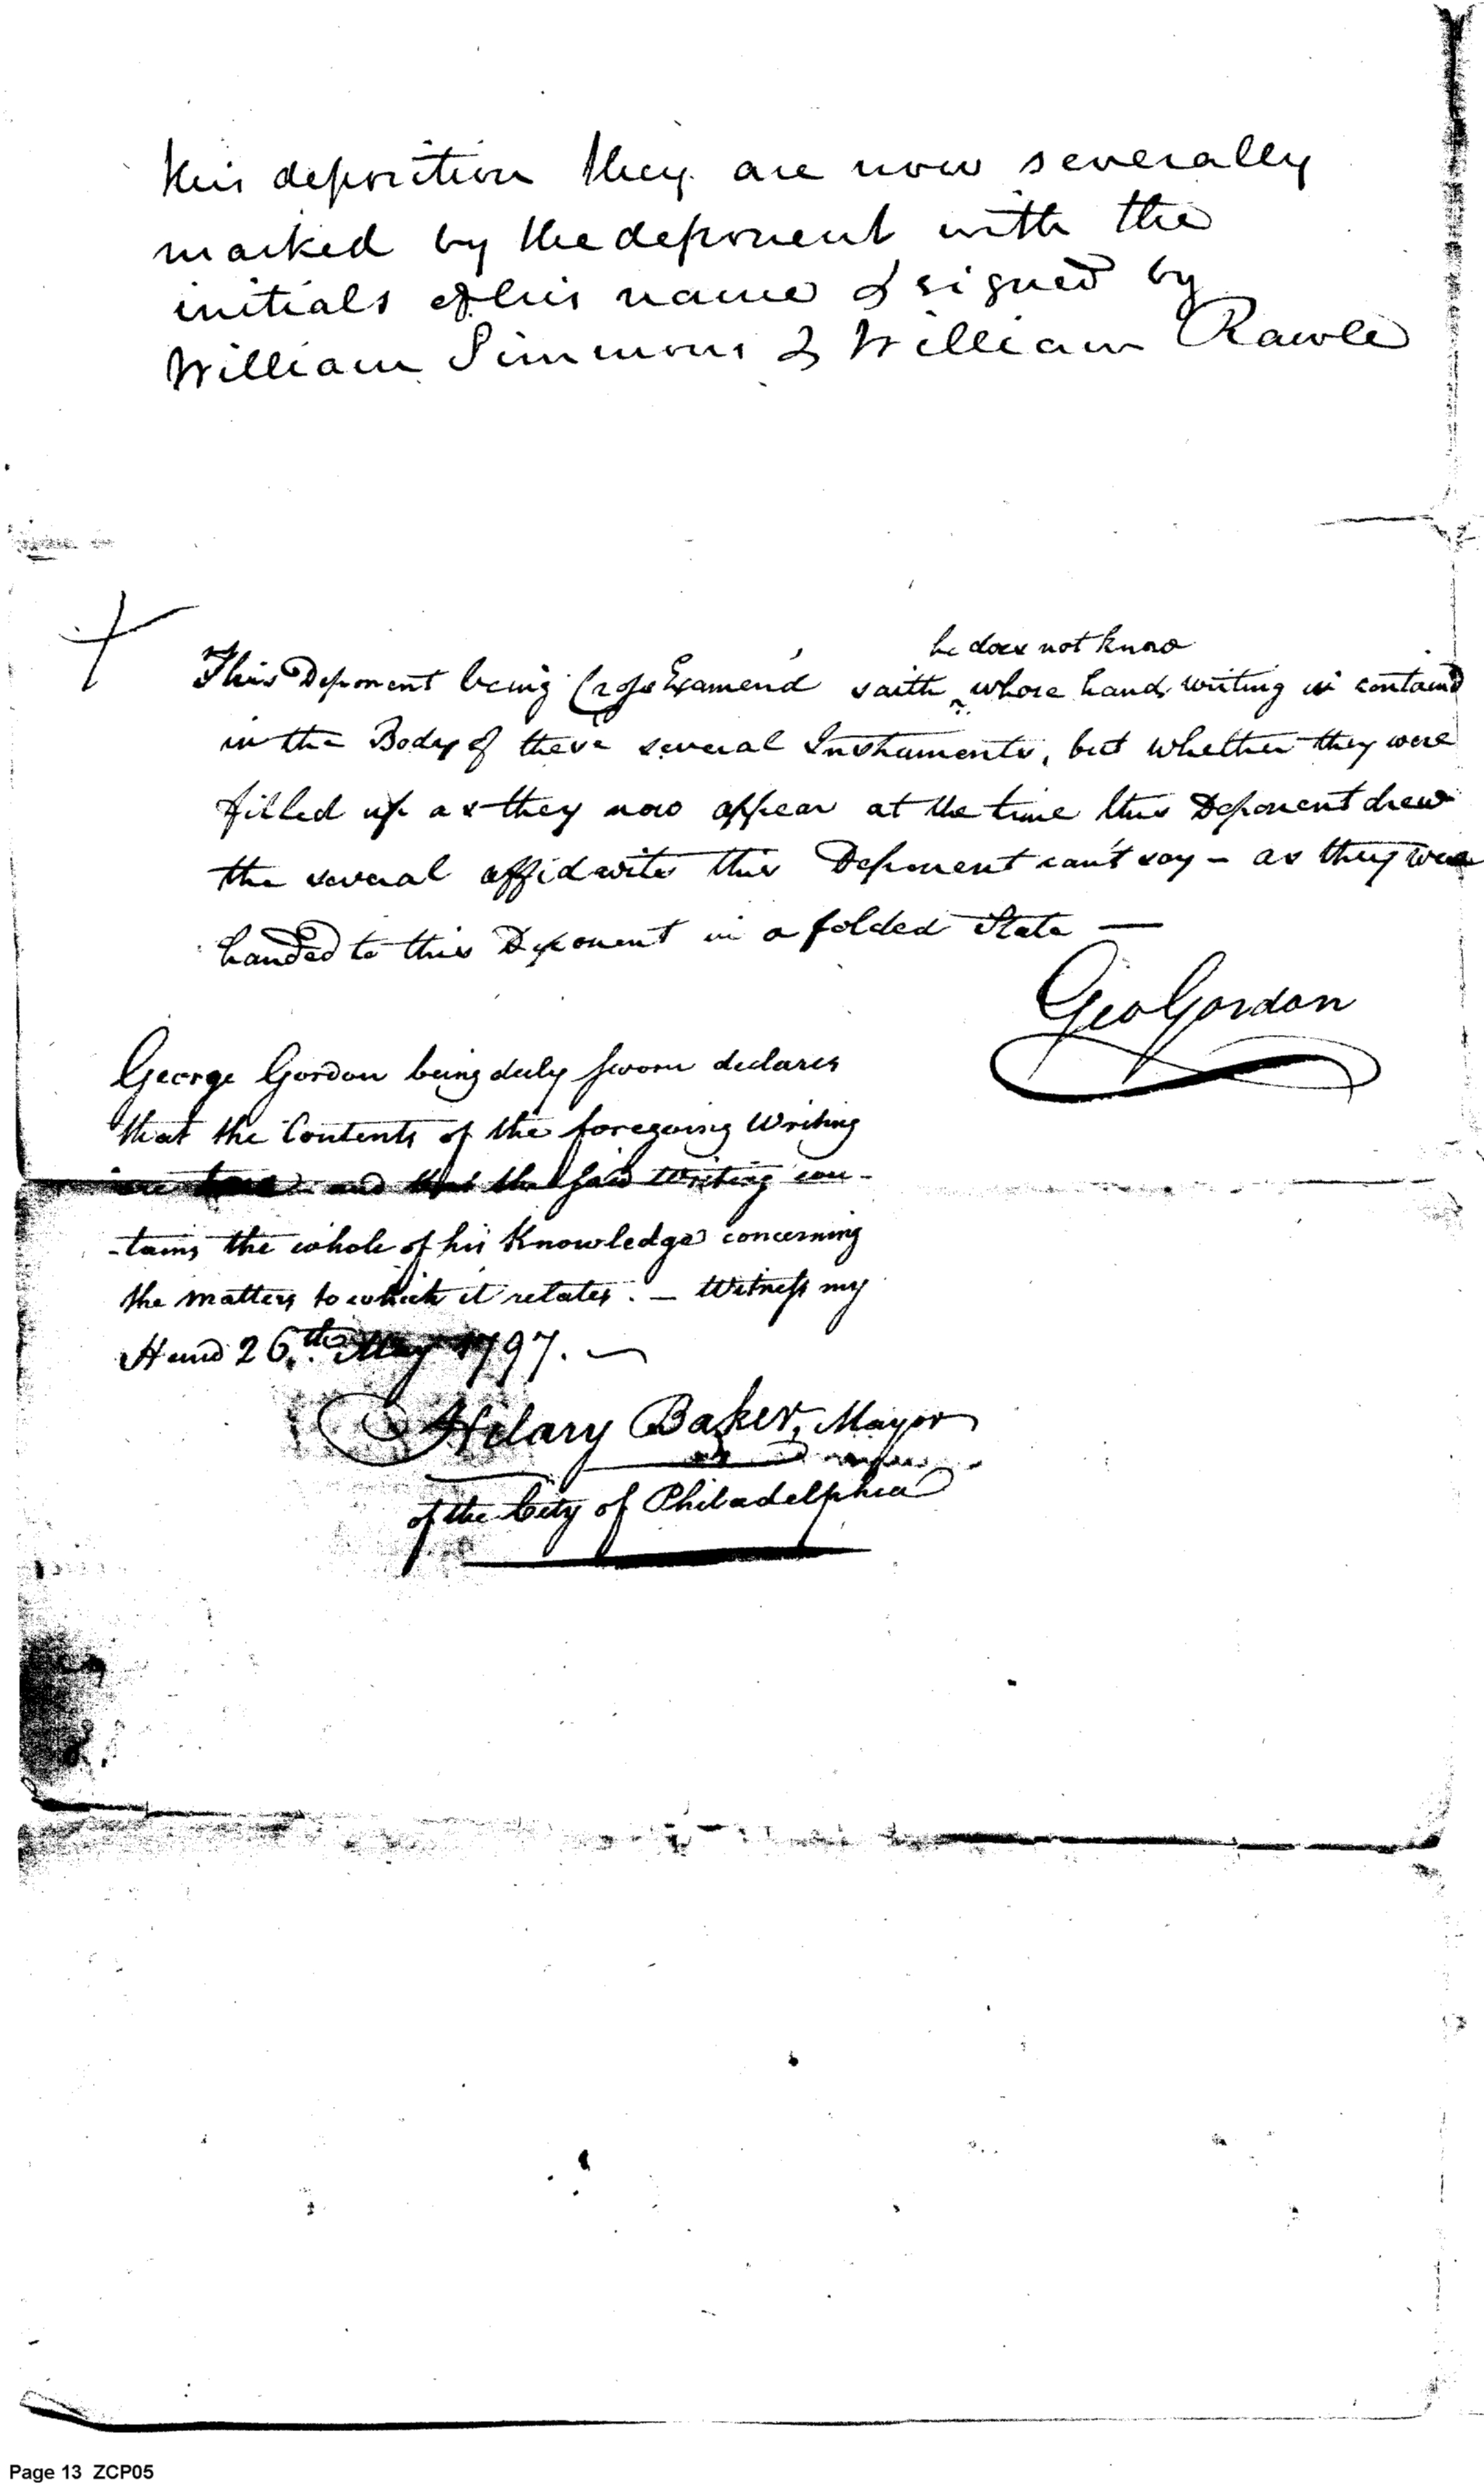 this deposition they are now severally
marked by the deponent with the
initials of his name & signed by
William Simmons & William Rawle
he does not know
This Deponent being Cross Examend saith whose hand writing is containd
in the Body of these several Instruments, but whether they were
filled up as they now appear at the time this Deponent drew
the several affidavits this Deponent can't say - as they were
handed to this Deponent in a folded State —
Geo Gordon
George Gordon being duly sworn declares
that the Contents of the foregoing Writing
are true and that the said Writing con-
-tains the whole of his Knowledge concerning
the matters to which it relates. — Witness my
Hand 26.th May 1797. —
Hilary Baker, Mayor
of the City of Philadelphia
Page 13 ZCP05